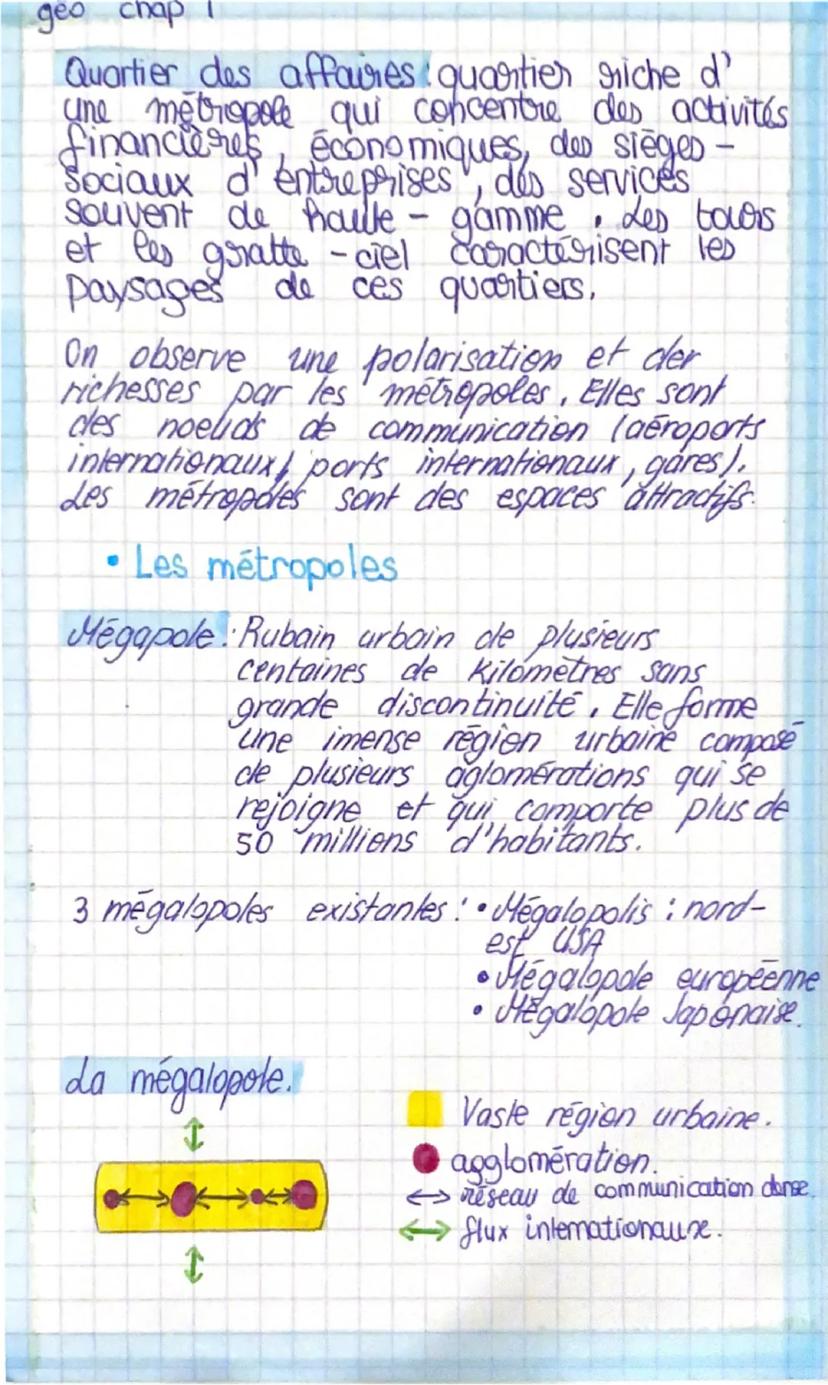 géo chap 1
Quartier des affaires : quartier riche d'
une métropole qui concentre des activités
financières, économiques, des sièges -
sociaux d'entreprises, des services
souvent de haute - gamme. Les tours
et les gratte - ciel caractérisent les
paysages de ces quartiers.
On observe une polarisation et der
richesses par les métropoles. Elles sont
des noeuds de communication (aéroports
internationaux, ports internationaux, gares).
Les métropoles sont des espaces attractifs.
• Les métropoles
Mégapole : Rubain urbain de plusieurs
centaines de kilomètres sans
grande discontinuité. Elle forme
une imense région urbaine composé
de plusieurs aglomérations qui se
rejoigne et qui comporte plus de
50 millions d'habitants.
3 mégalopoles existantes : • Mégalopolis : nord-
est USA
• Mégalopole européenne
• Mégalopole Japonaise.
La mégalopole.
Vaste région urbaine.
agglomération.
réseau de communication dense.
flux internationaux.